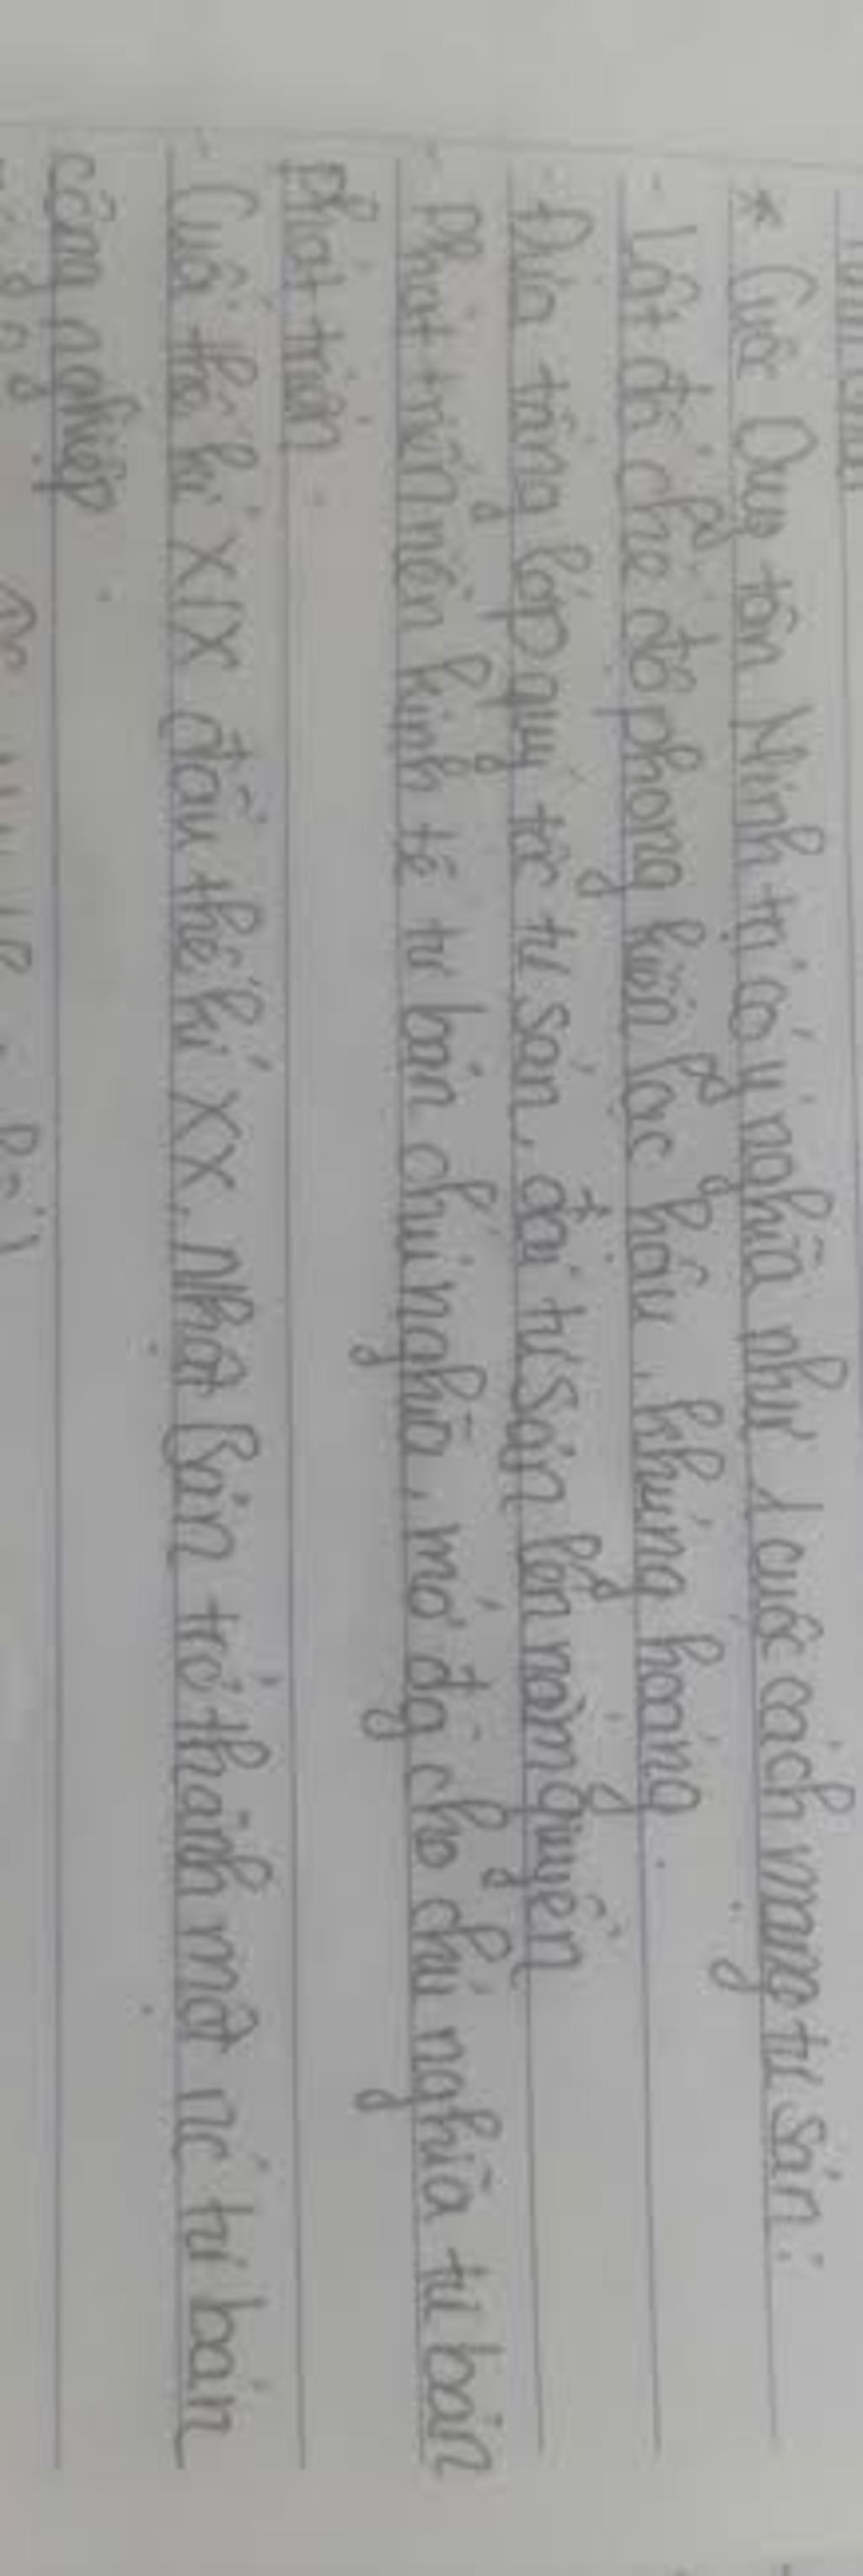 * Cuộc Duy tân Minh trị có ý nghĩa như 1 cuộc cách mạng tư sản :
- Lật đổ chế độ phong kiến lạc hậu, khủng hoảng.
- Đưa tầng lớp quý tộc tư sản, đại tư sản lên nắm quyền
- Phát triển nền kinh tế tư bản chủ nghĩa, mở đg cho chủ nghĩa tư bản
phát triển.
- Cuối thế kỉ XIX đầu thế kỉ XX, Nhật Bản trở thành một nc tư bản
công nghiệp